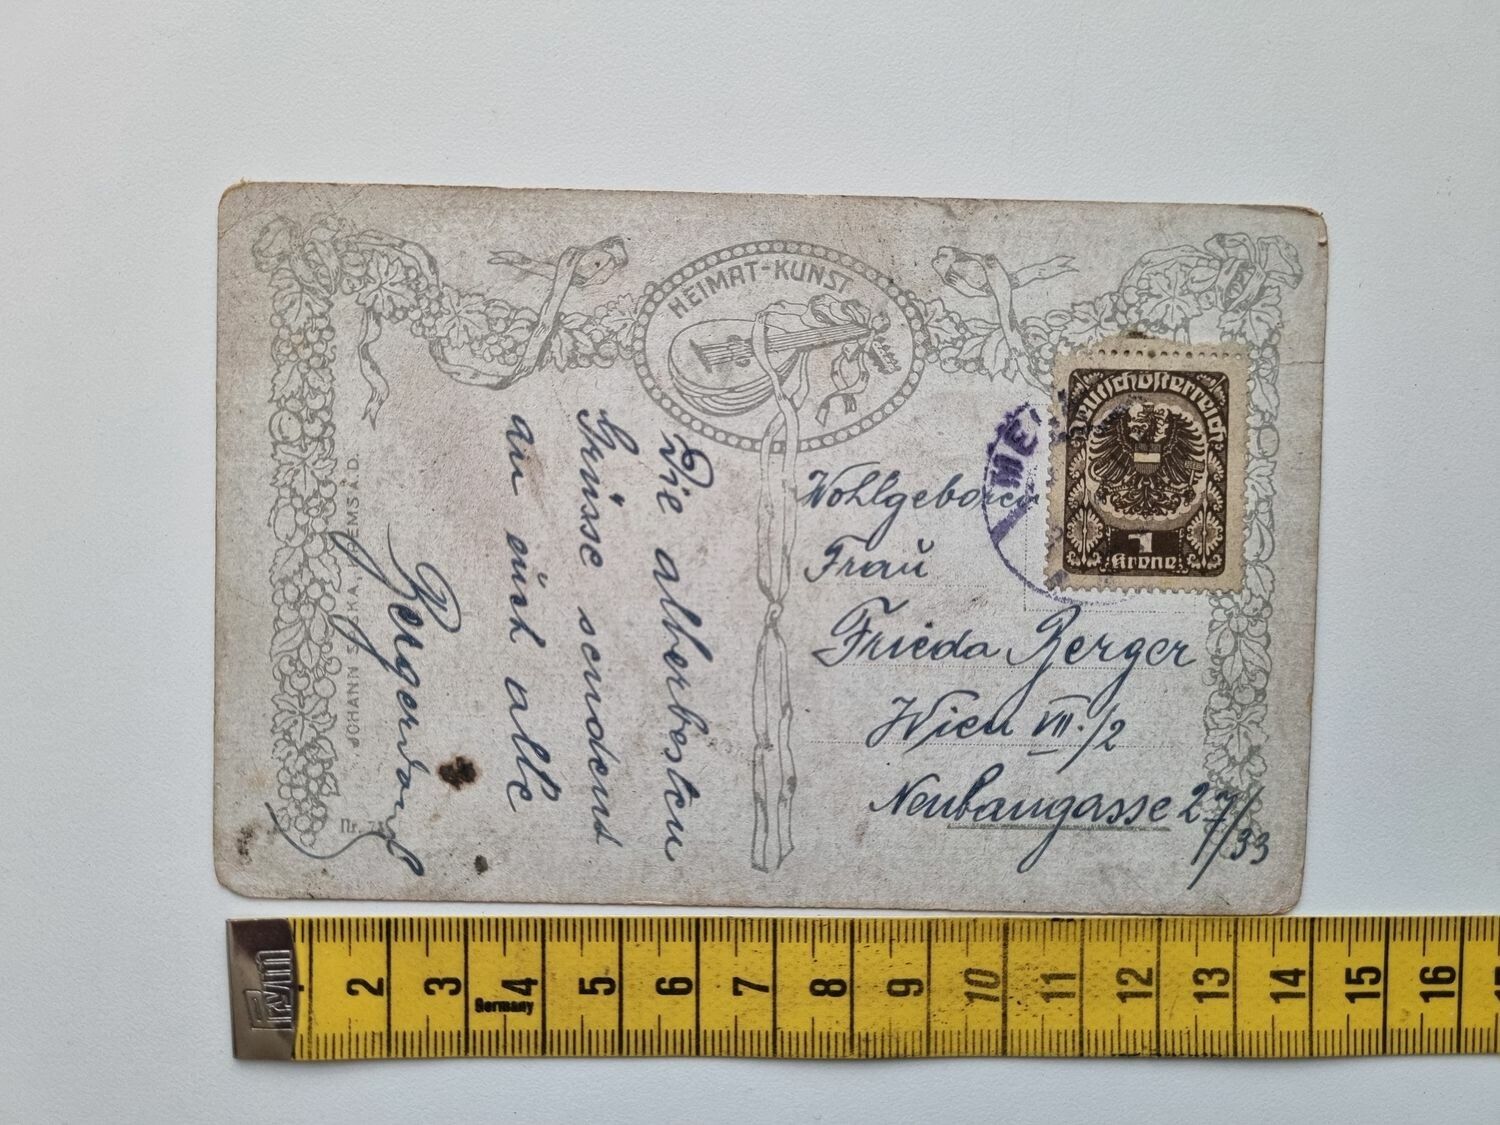 HEIMAT-KUNST
Die allerbesten
Grüsse sendend
an euch alle
JOHANN
KREMS A.D.
Nr. 7
Deutschösterreich
1
Krone
ME
Wohlgeboren
Frau
Frieda Berger
Wien VII./2
Neubaugasse 27/33
PRYM
2 3 4 5 6 7 8 9 10 11 12 13 14 15 16
Germany